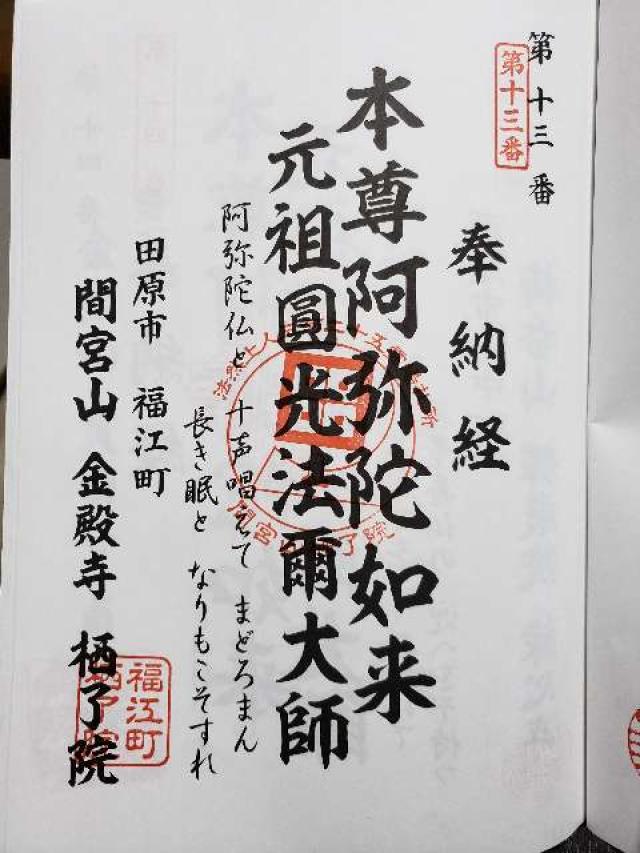 第十三番
第十三番
奉納経
本尊阿弥陀如来
元祖圓光法爾大師
阿弥陀仏と 十声唱えて まどろまん
長き眠と なりもこそすれ
田原市 福江町
間宮山 金殿寺 栖了院
福江町
栖了院